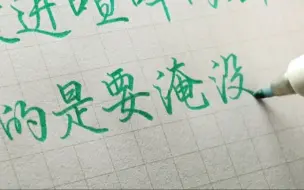 进喧
的是要淹没